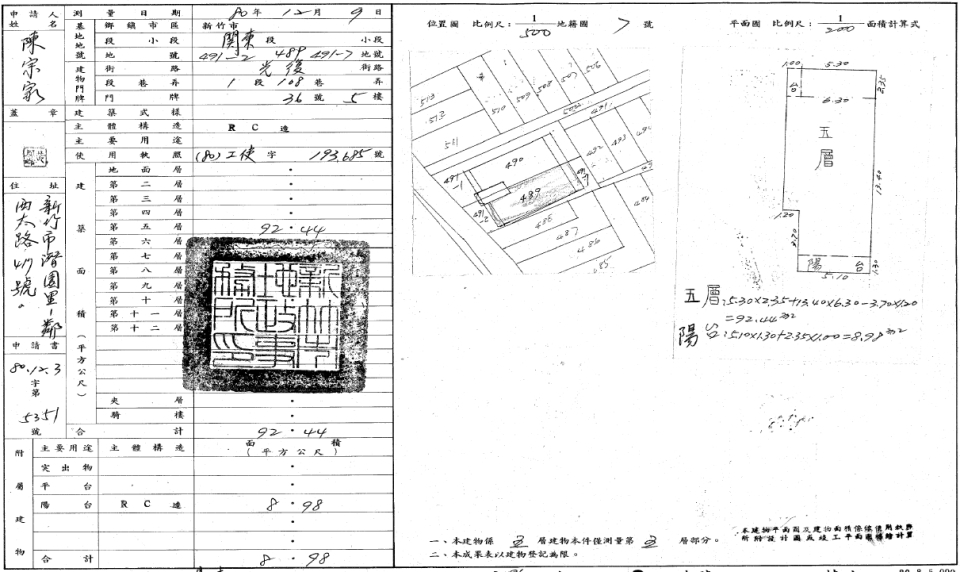 申請人姓名
陳宗家
蓋章
住址
新竹市潛園里1鄰
西大路417號。
申請書
80.12.3
字第
5351
號
測量日期 80年12月9日
基地地號 鄉鎮市區 新竹市
段小段 關東段 小段
地號 491-2 489 491-7 地號
建物門牌 街路 光復 街路
段巷弄 1段108巷 弄
門牌 36號5樓
建築式樣
主體構造 RC造
主要用途
使用執照 (80)工使字193,685號
建築面積(平方公尺)
地面層
第二層
第三層
第四層
第五層 92.44
第六層
第七層
第八層
第九層
第十層
第十一層
第十二層
新竹市地政事務所印
夾層
騎樓
合計 92.44
附屬建物
主要用途 主體構造 面積(平方公尺)
突出物
平台
陽台 RC造 8.98
合計 8.98
位置圖 比例尺:1/500 地籍圖 7號
513
512
511
510
509
508
507
506
491
490
489
491-1
491-2
492
493
486
487
485
484
平面圖 比例尺:1/200 面積計算式
1.00 5.30
2.35
6.30
五層
13.40
1.20
3.70
陽台
1.30
5.10
五層:5.30×2.35+13.40×6.30-3.70×1.20
=92.44m2
陽台:5.10×1.30+2.35×1.00=8.98m2
一、本建物係5層建物本件僅測量第5層部分。
二、本成果表以建物登記為限。
本建物平面圖及建物面積係依使用執照
所附設計圖或竣工平面圖轉繪計算